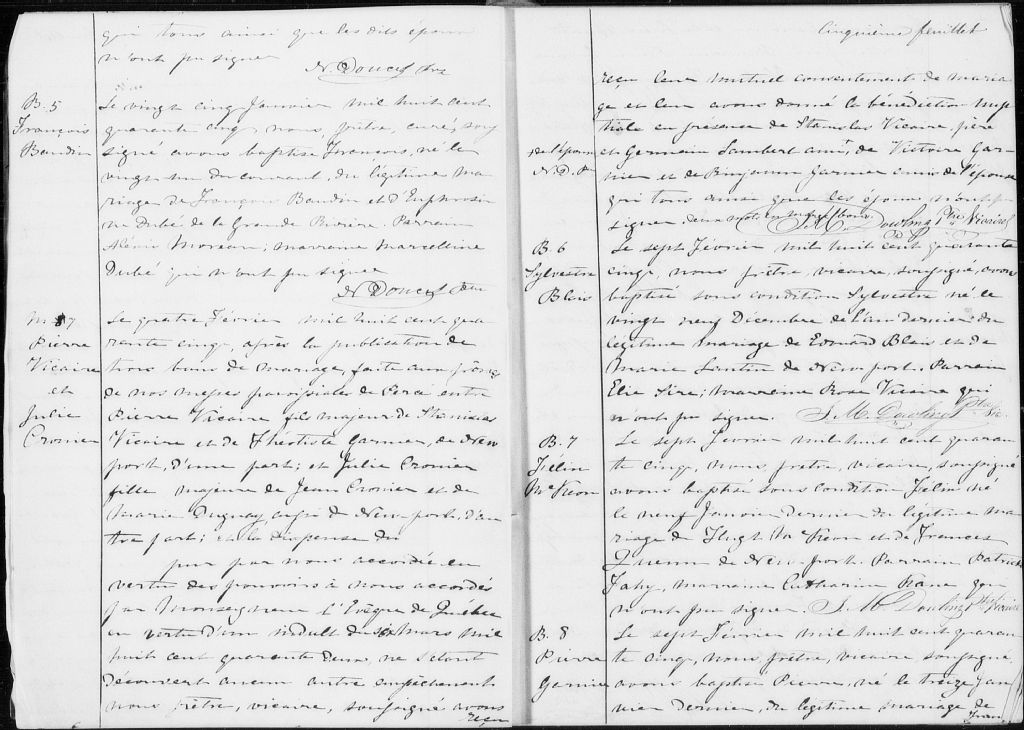 qui tous ainsi que les dits époux
n'ont pu signer
N. Doucet Ptre
B. 5
François
Baudin
Le vingt cinq Janvier mil huit cent
quarante cinq, nous, prêtre, curé, sous
signé avons baptisé François, né le
vingt un du courant, du légitime ma
riage de François Baudin et d'Euphrosi
ne Dubé de la Grande Rivière. Parrain
Alexis Moreau; marraine Marcelline
Dubé qui n'ont pu signer
N Doucet Ptre
M 7
Pierre
Vicaire
et
Julie
Cronier
Le quatre Février mil huit cent qua
rante cinq, après la publication de
trois bans de mariage, faite aux prônes
de nos messes paroissiales de Percé entre
Pierre Vicaire fils majeur de Stanislas
Vicaire et de Théotiste Garnier, de New
port, d'une part; et Julie Cronier
fille majeure de Jean Cronier et de
Marie Duguay, aussi de Newport, d'au
tre part; et la dispense du
par nous accordée en
vertu des pouvoirs à nous accordés
par Monseigneur l'Evêque de Québec
en vertu d'un indult du six mars mil
huit cent quarante deux, ne s'étant
découvert aucun autre empêchement
nous prêtre, vicaire, soussigné avons
reçu
Cinquième feuillet
reçu leur mutuel consentement de maria
ge et leur avons donné la bénédiction nup
tiale en présence de Stanislas Vicaire, père
de l'époux
N. D. Ptre
et Germain Lambert ami, de Victoire Gar
nier et de Benjamin Garnier amis de l'épouse
qui tous ainsi que les époux n'ont pu
signer. deux mots en marge bons.
J. M. Dowling Ptre Vicaire
B 6
Sylvestre
Blais
Le sept Février mil huit cent quarante
cinq, nous prêtre, vicaire, soussigné, avons
baptisé sous condition Sylvestre né le
vingt neuf Décembre de l'an dernier du
légitime mariage de Edouard Blais et de
Marie Lantin de Newport. Parrain
Elie Sire; marraine Rose Vicaire qui
n'ont pu signer. J. M. Dowling Ptre Vic.
B. 7
Félix
McKeon
Le sept Février mil huit cent quaran
te cinq, nous, prêtre, vicaire, soussigné
avons baptisé sous condition Félix né
le neuf Janvier dernier du légitime ma
riage de Hugh McKeon et de Frances
de Newport. Parrain Patrick
Fahy, marraine Catharine qui
n'ont pu signer. J. M. Dowling Ptre Vicaire
B. 8
Pierre
Garnier
Le sept Février mil huit cent quaran
te cinq, nous prêtre, vicaire soussigné,
avons baptisé Pierre, né le treize Jan
vier dernier, du légitime mariage de
Fran